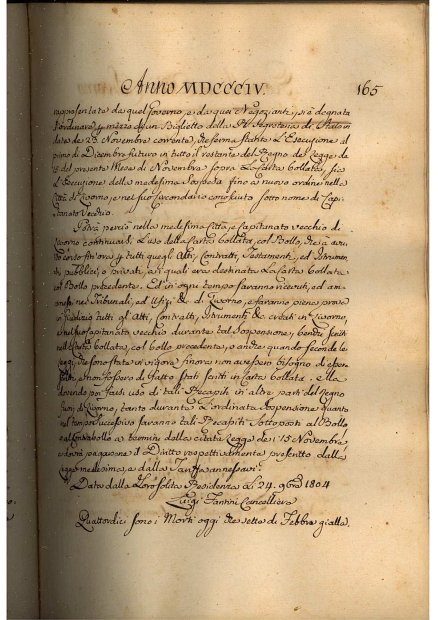 Anno MDCCCIV. 165
rappresentate da quel Governo, e da quei Negozianti, si è degnata
ordinare p mezzo di un Biglietto della Rl Segreteria di Stato in
data de 23 Novembre corrente, che ferma stante L'Esecuzione al
primo di Dicembre futuro in tutto il restante del Regno de Legge de
15 del presente Mese di Novembre sopra La Carta bollata, sia
L'Esecuzione della medesima Sospesa fino a nuovo ordine nella
Città di Livorno, e nel suo Circondario conosciuto sotto nome di Capi-
tanato Vecchio.
Potrà però nella medesima Città, e Capitanato vecchio di
Livorno continuarsi L'uso della Carta bollata, col Bollo, che si à avu-
to corso fin'ora p tutti quegli Atti, Contratti, Testamenti, ed Istrumen-
ti pubblici, o privati, ai quali era destinata La Carta bollata
col Bollo precedente. Ed in ogni tempo saranno ricevuti, ed am-
messi nei Tribunali, ed Ufizi & di Livorno, e faranno piena prova
in Giudizio tutti gli Atti, Contratti, Istrumenti & creati in Livorno,
e nel suo Capitanato vecchio durante tal Sospensione, benchè scritti
nell Carta bollata, col bollo precedente, o anche quando secondo le
Leggi, che sono state in vigore finora non avessero bisogno di essere
scritti, e non fossero di fatto stati scritti in Carta bollata. e Ella
dovendo poi farsi uso di tali Recapiti in altre parti del Regno
fuori di Livorno, tanto durante L'ordinata Sospensione quanto
nel tempo successivo saranno tali Recapiti Sottoposti al Bollo
a termini della citata Legge de' 15 Novembre
e dovrà pagarsene il Diritto respettivamente prescritto dalla
Legge medesima, e dalla Tariffa annessavi.
Data dalla Loro solita Residenza Li 24. 9bre 1804
Luigi Fantini Cancelliere
Quattordici sono i Morti oggi che setto di Febbre gialla